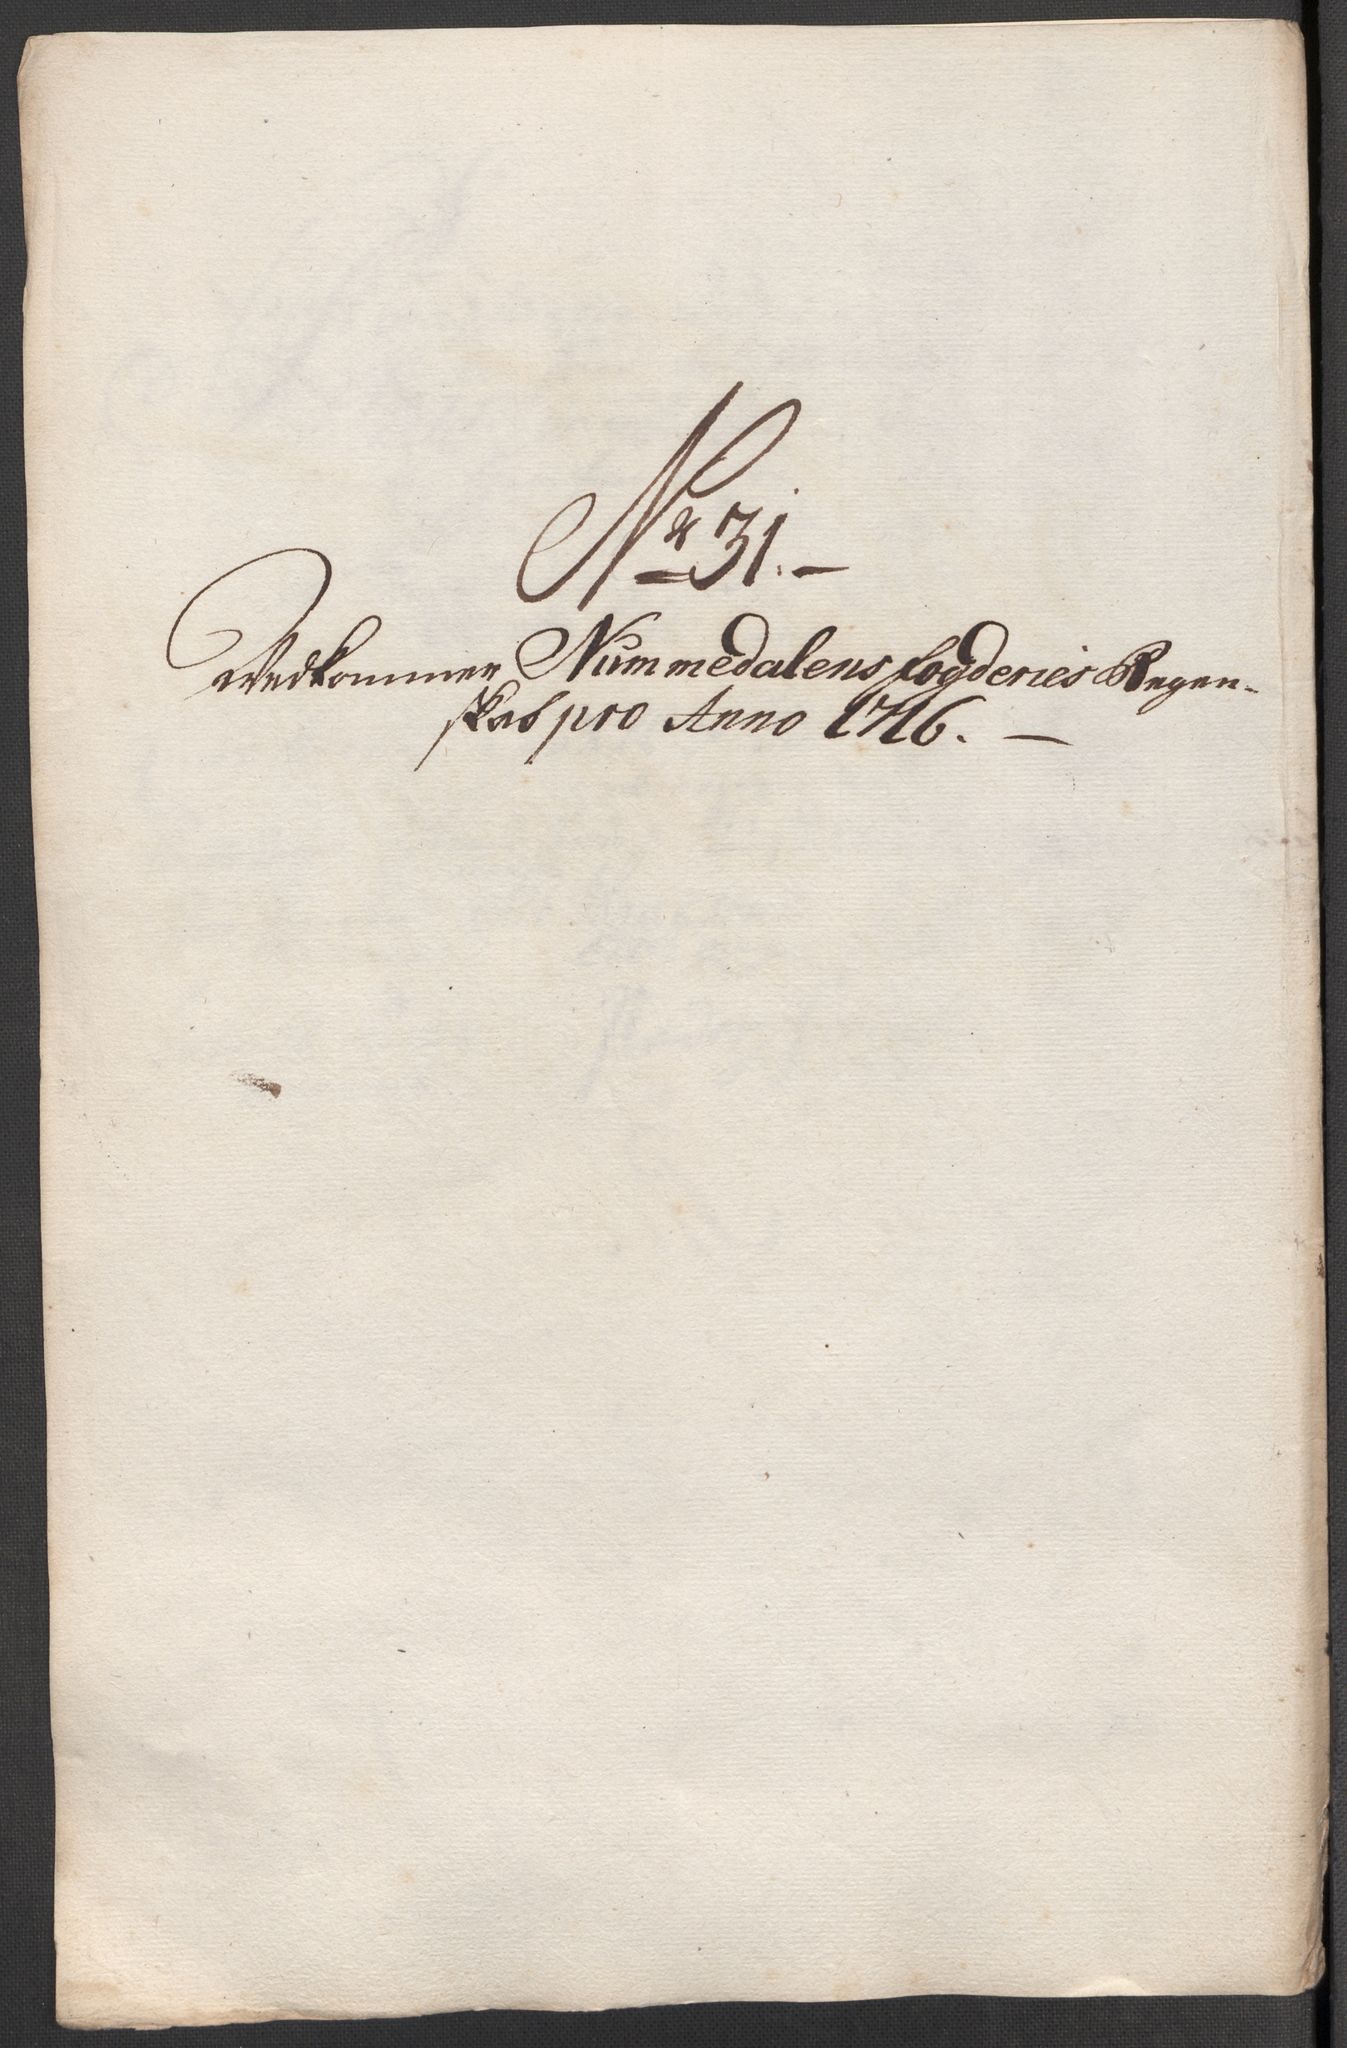 No 31.
Vedkommer Nummedalens fogderies Regen-
skab pro Anno 1716.